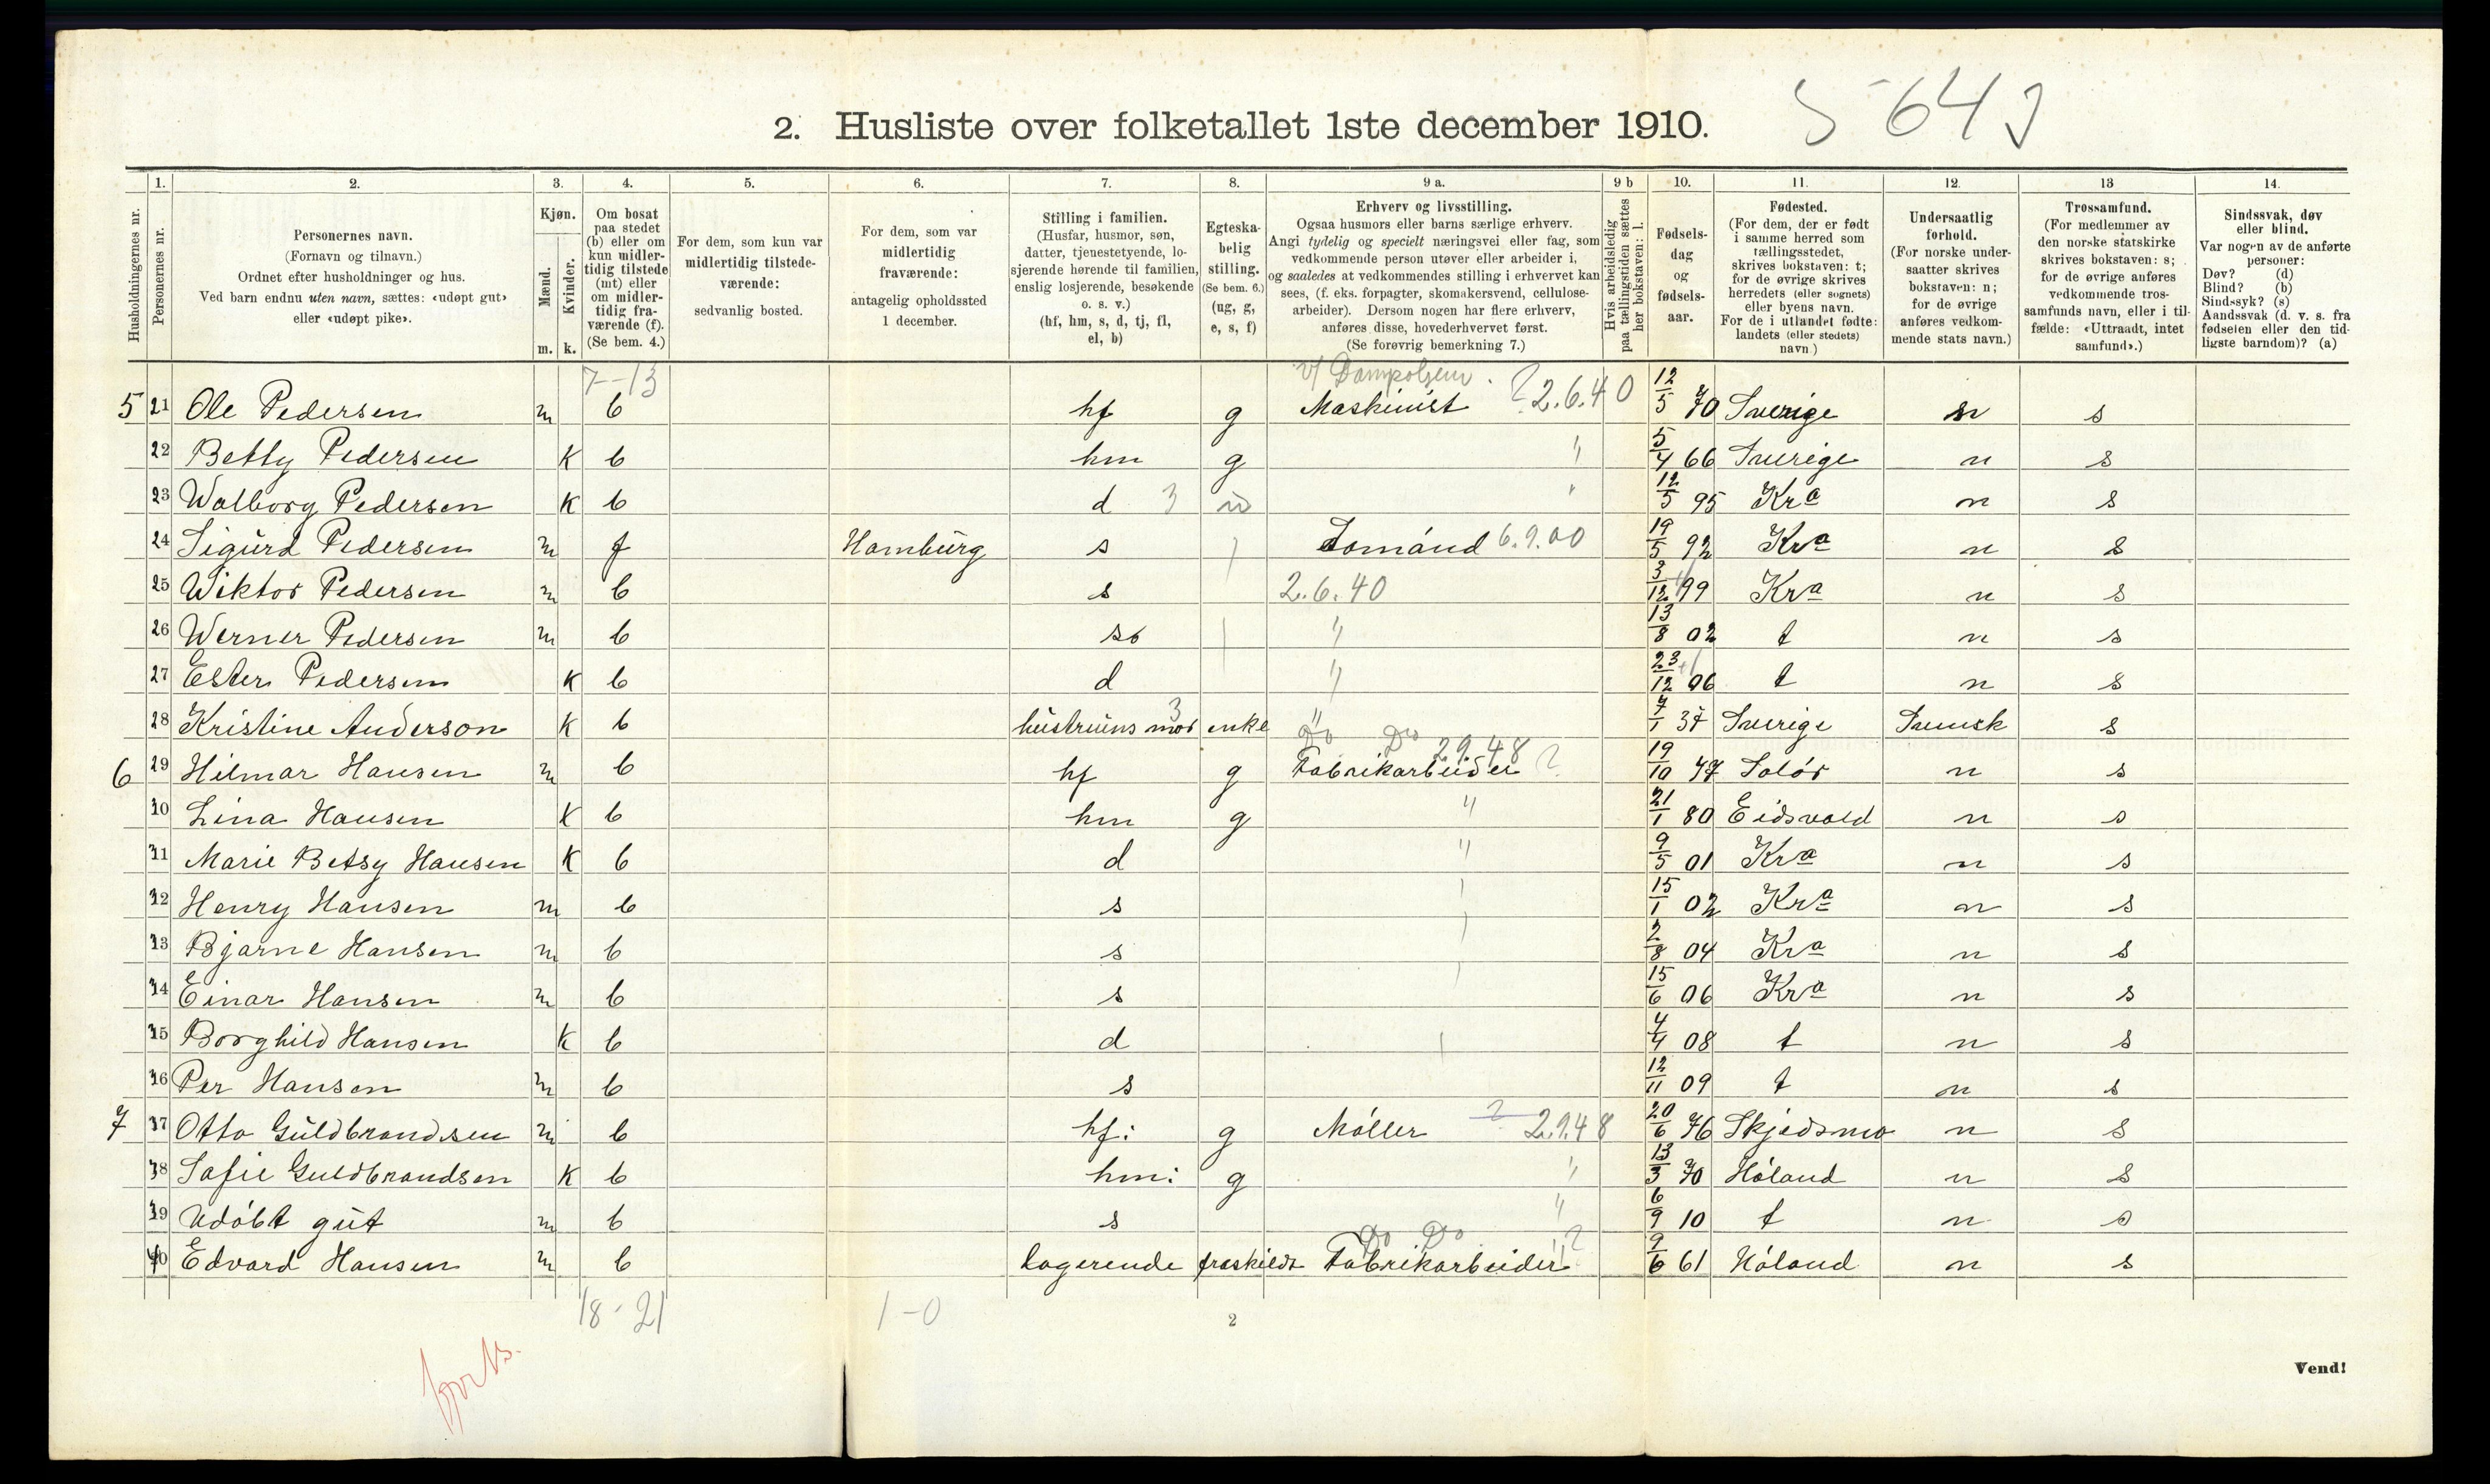 S 643
2. Husliste over folketallet 1ste december 1910.
1. 2. 3. 4. 5. 6. 7. 8. 9 a. 9 b 10. 11. 12. 13 14.
Husholdningernes nr.
Personernes nr.
Personernes navn.
(Fornavn og tilnavn.)
Ordnet efter husholdninger og hus.
Ved barn endnu uten navn, sættes: «udøpt gut»
eller «udøpt pike».
Kjøn.
Mænd.
Kvinder.
m. k.
Om bosat
paa stedet
(b) eller om
kun midler-
tidig tilstede
(mt) eller
om midler-
tidig fra-
værende (f).
(Se bem. 4.)
For dem, som kun var
midlertidig tilstede-
værende:
sedvanlig bosted.
For dem, som var
midlertidig
fraværende:
antagelig opholdssted
1 december.
Stilling i familien.
(Husfar, husmor, søn,
datter, tjenestetyende, lo-
sjerende hørende til familien,
enslig losjerende, besøkende
o. s. v.)
(hf, hm, s, d, tj, fl,
el, b)
Egteska-
belig
stilling.
(Se bem. 6.)
(ug, g,
e, s, f)
Erhverv og livsstilling.
Ogsaa husmors eller barns særlige erhverv.
Angi tydelig og specielt næringsvei eller fag, som
vedkommende person utøver eller arbeider i,
og saaledes at vedkommendes stilling i erhvervet kan
sees, (f. eks. forpagter, skomakersvend, cellulose-
arbeider). Dersom nogen har flere erhverv,
anføres disse, hovederhvervet først.
(Se forøvrig bemerkning 7.)
Hvis arbeidsledig
paa tællingstiden sættes
her bokstaven: l.
Fødsels-
dag
og
fødsels-
aar.
Fødested.
(For dem, der er født
i samme herred som
tællingsstedet,
skrives bokstaven: t;
for de øvrige skrives
herredets (eller sognets)
eller byens navn.
For de i utlandet fødte:
landets (eller stedets)
navn.)
Undersaatlig
forhold.
(For norske under-
saatter skrives
bokstaven: n;
for de øvrige
anføres vedkom-
mende stats navn.)
Trossamfund.
(For medlemmer av
den norske statskirke
skrives bokstaven: s;
for de øvrige anføres
vedkommende tros-
samfunds navn, eller i til-
fælde: «Uttraadt, intet
samfund».)
Sindssvak, døv
eller blind.
Var nogen av de anførte
personer:
Døv? (d)
Blind? (b)
Sindssyk? (s)
Aandssvak (d. v. s. fra
fødselen eller den tid-
ligste barndom)? (a)
7-13 v/
5 21 Ole Pedersen m b hf g Maskinist 2.6.40 12/5 70 Sverige n s
22 Betty Pedersen K b hm g " 5/4 66 Sverige n s
23 Walborg Pedersen K b d 3 " 12/5 95 Kra n s
24 Sigurd Pedersen m f Hamburg s Somand 6.9.00 19/5 92 Kra n s
25 Wiktor Pedersen m b s 2.6.40 3/12 99 Kra n s
26 Werner Pedersen m b s " 13/8 02 t n s
27 Ester Pedersen K b d " 23/12 06 t n s
28 Kristine Anderson K b hustruens mor 3 enke " 7/1 37 Sverige Svensk s
Do Do 2.9.48
6 29 Hilmar Hansen m b hf g Fabrikarbeider ? 19/10 47 Solør n s
30 Lina Hansen K b hm g " 21/1 80 Eidsvold n s
31 Marie Betsy Hansen K b d " 9/5 01 Kra n s
32 Henry Hansen m b s 15/1 02 Kra n s
33 Bjarne Hansen m b s 2/8 04 Kra n s
34 Einar Hansen m b s 15/6 06 Kra n s
35 Borghild Hansen K b d 4/4 08 t n s
36 Per Hansen m b s 12/11 09 t n s
7 37 Otto Guldbrandsen m b hf: g Møller ? 2.9.48 20/6 76 Skjedsmo n s
38 Sofie Guldbrandsen K b hm: g " 13/3 70 Høland n s
39 Udøbt gut m b s " 6/9 10 t n s
Do Do " ?
40 Edvard Hansen m b logerende fraskildt Fabrikarbeider 9/6 61 Høland n s
18-21 1-0 2
Vend!